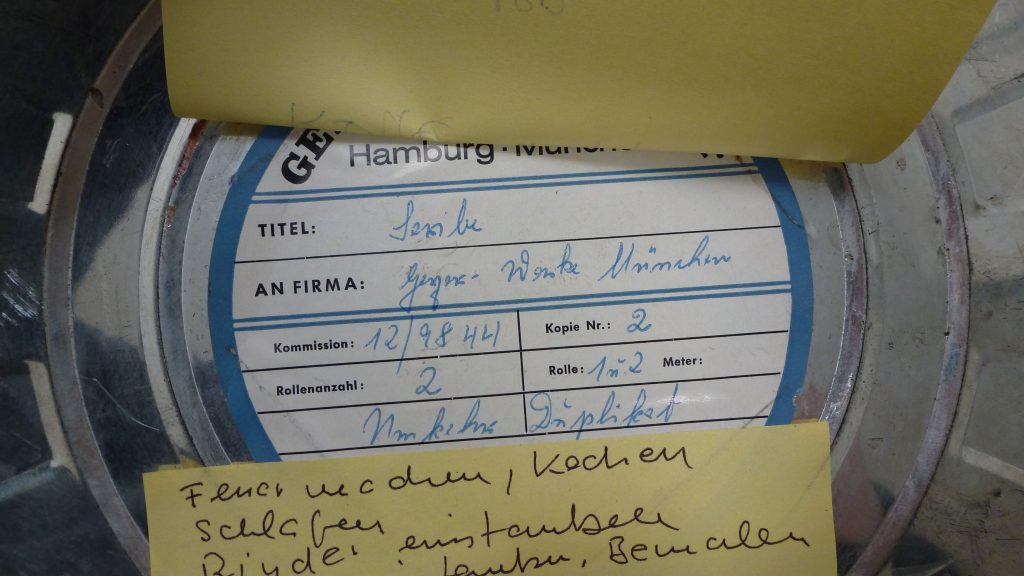 GE
Hamburg · Münche
TITEL: Scribe
AN FIRMA: Geyer- Werke München
Kommission: 12/9844
Kopie Nr.: 2
Rollenanzahl: 2
Rolle: 1 u. 2 Meter:
Umkehr Duplikat
Feuer machen, Kochen
Schlafen
Rinde einstauben
Bemalen